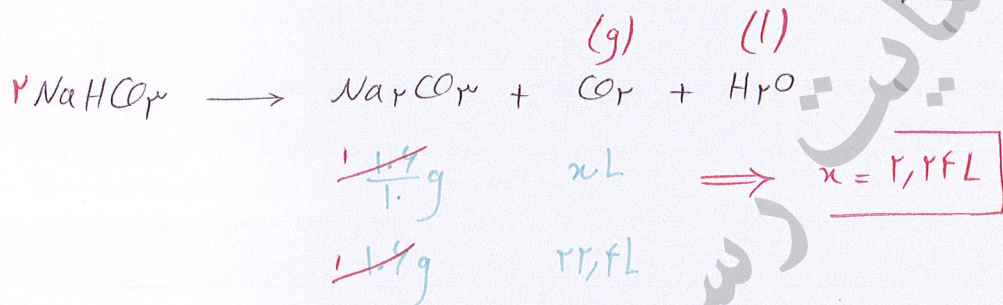 (g) (l)
۲NaHCO۳ → Na۲CO۳ + CO۲ + H۲O
۱ ۱۰۶/۱۰ g xL ⇒ x = ۲,۲۴L
۱ ۱۰۶g ۲۲,۴L